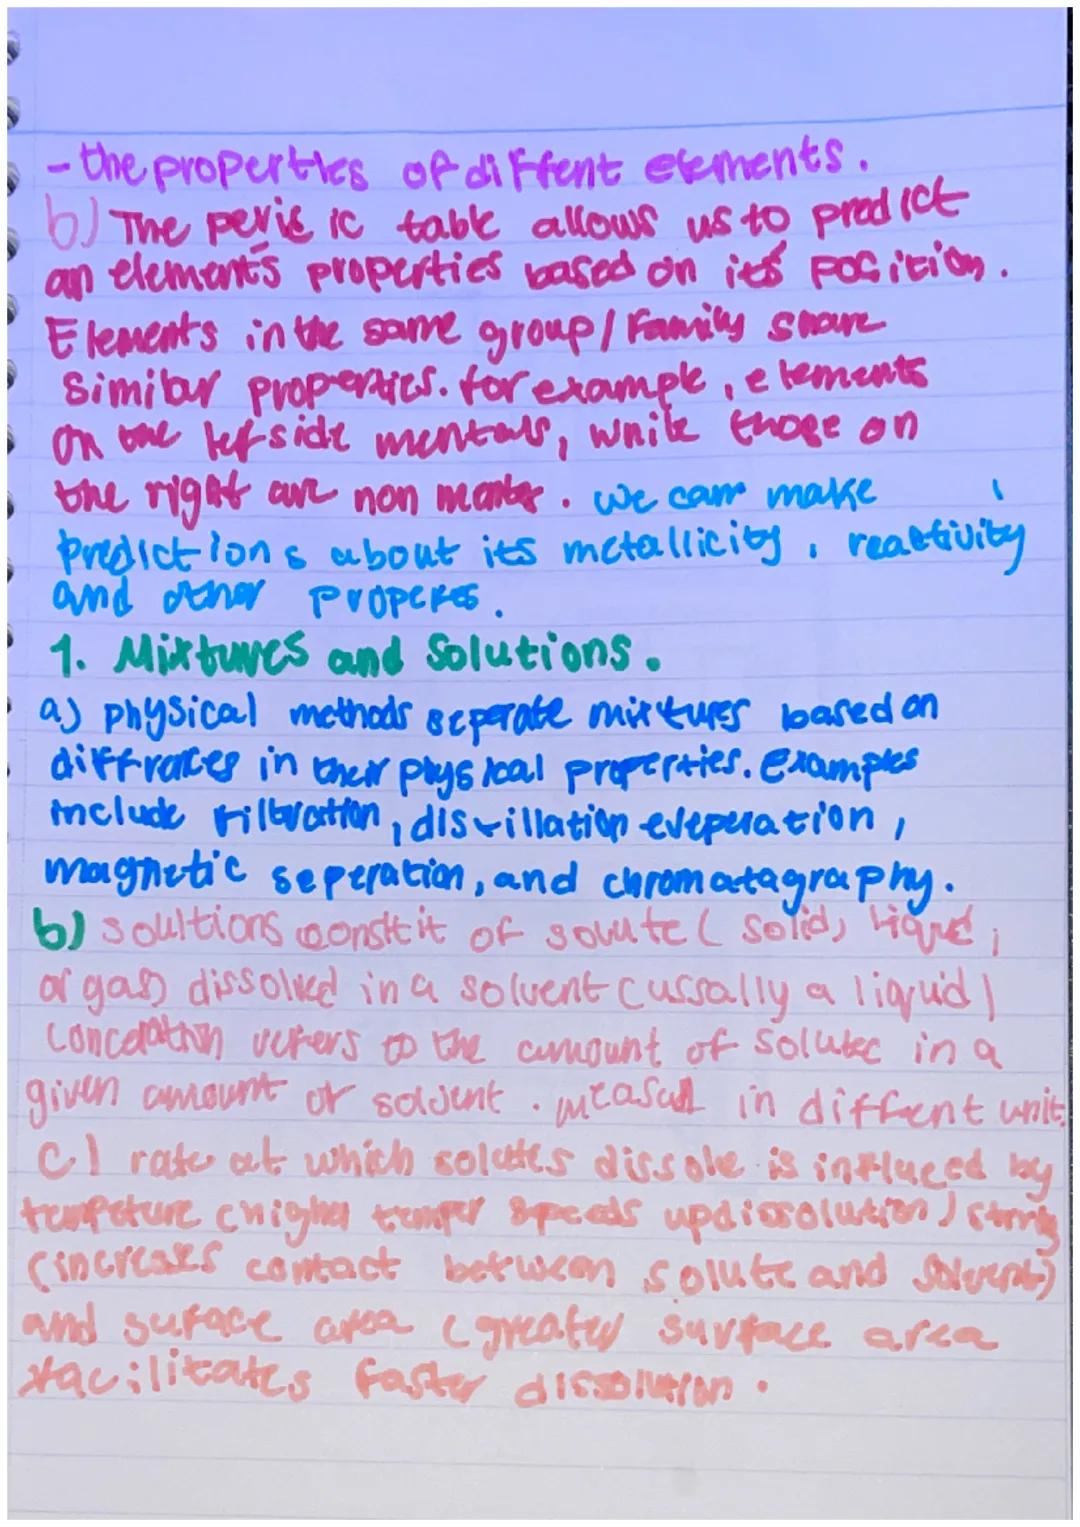 - the properties of diffent elements.
b) The peric ic table allows us to predict
an element's properties based on it's position.
Elements in the same group/Family share
Similar properties. for example, elements
on the lefside mentals, while those on
the right are non mentals. we can make
predictions about its metallicity, reactivity
and other properes.
1. Mixtures and Solutions.
a) physical methods seperate mixtures based on
diffraces in their physical properties. Examples
include filtration, distillation eveperation,
magnetic seperation, and chromatagraphy.
b) soultions constit of solute (solid, liquid,
or gas) dissolved in a solvent (ussally a liquid)
refers to the amount of solute in a
given amount of solvent. in diffent unit.
c) rate at which solutes dissole is influced by
tempeture (higher temper speeds up dissolution)
(increases contact between solute and solvent)
and surface area (greater surface area
facilitates faster dissolution.